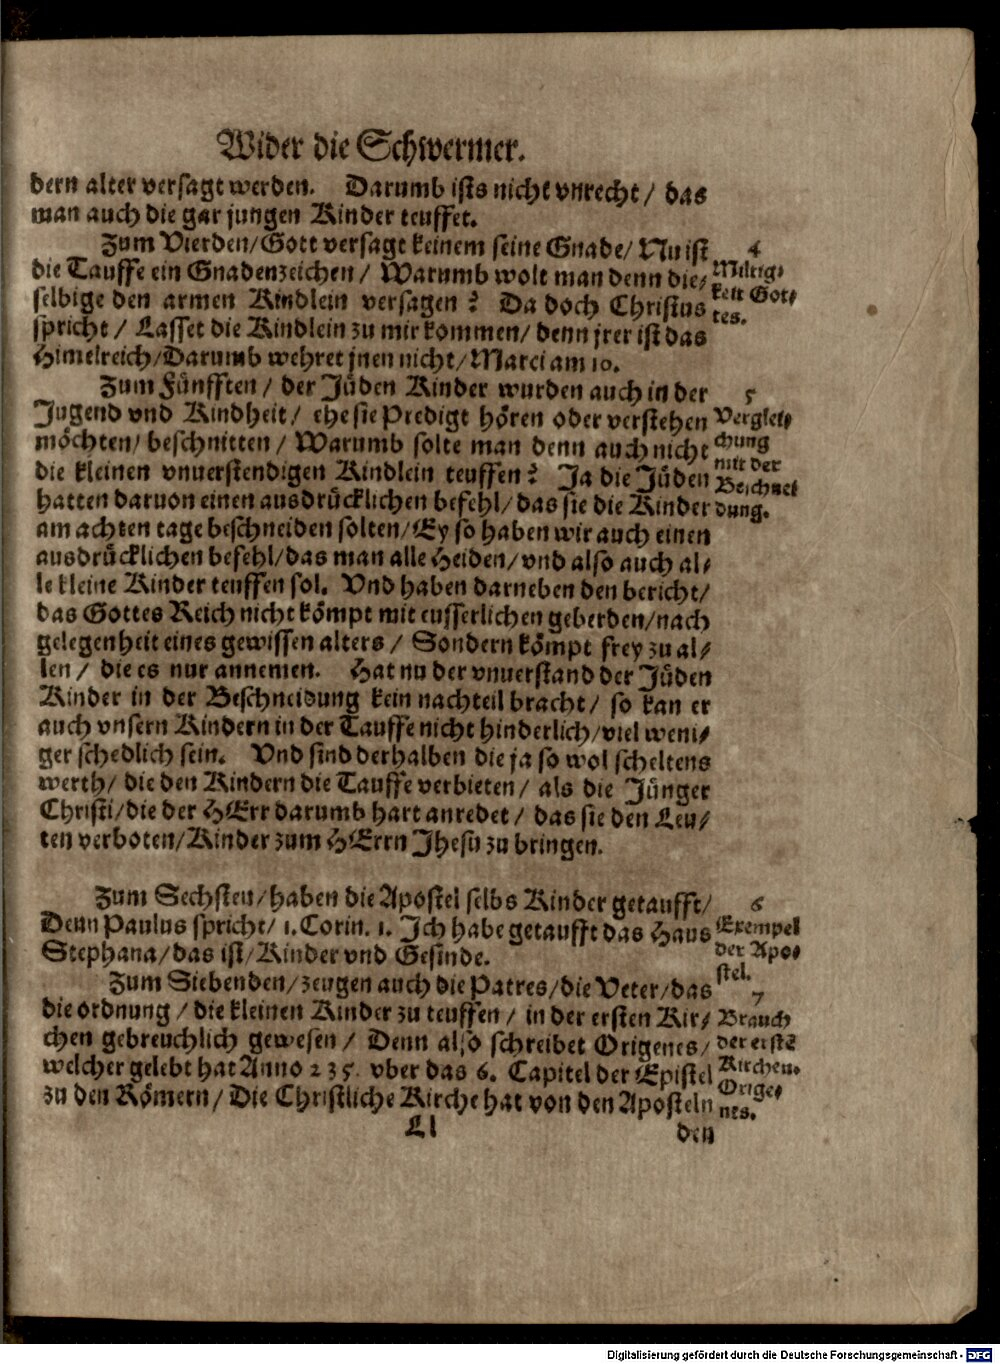 Wider die Schwermer.
dern alter versagt werden. Darumb ists nicht vnrecht / das
man auch die gar jungen Kinder teuffet.
Zum Vierden/Gott versagt keinem seine Gnade/ Nu ist
die Tauffe ein Gnadenzeichen / Warumb wolt man denn die⸗
selbige den armen Kindlein versagen? Da doch Christus
spricht / Lasset die Kindlein zu mir kommen/ denn jrer ist das
Himelreich/Darumb wehret jnen nicht/Marci am 10.
4
Miltig⸗
keit Got⸗
tes.
Zum Fünfften / der Jüden Kinder wurden auch in der
Jugend vnd Kindheit/ ehe sie Predigt hören oder verstehen
möchten/ beschnitten / Warumb solte man denn auch nicht
die kleinen vnuerstendigen Kindlein teuffen? Ja die Jüden
hatten daruon einen ausdrücklichen befehl/das sie die Kinder
am achten tage beschneiden solten/Ey so haben wir auch einen
ausdrücklichen befehl/das man alle Heiden/vnd also auch al⸗
le kleine Kinder teuffen sol. Vnd haben darneben den bericht/
das Gottes Reich nicht kömpt mit eusserlichen geberden/nach
gelegenheit eines gewissen alters / Sondern kömpt frey zu al⸗
len / die es nur annemen. Hat nu der vnuerstand der Jüden
Kinder in der Beschneidung kein nachteil bracht / so kan er
auch vnsern Kindern in der Tauffe nicht hinderlich/viel weni⸗
ger schedlich sein. Vnd sind derhalben die ja so wol scheltens
werth/ die den Kindern die Tauffe verbieten/ als die Jünger
Christi/die der HErr darumb hart anredet / das sie den Leu⸗
ten verboten/Kinder zum HErrn Jhesu zu bringen.
5
Verglei⸗
chung
mit der
Beschnei
dung.
Zum Sechsten/haben die Apostel selbs Kinder getaufft/
Denn Paulus spricht/ 1. Corin. 1. Ich habe getaufft das Haus
Stephana/das ist/Kinder vnd Gesinde.
6
Exempel
der Apo⸗
stel.
Zum Siebenden/zeugen auch die Patres/die Veter/das
die ordnung / die kleinen Kinder zu teuffen / in der ersten Kir⸗
chen gebreuchlich gewesen / Denn also schreibet Origenes/
welcher gelebt hat Anno 235. vber das 6. Capitel der Epistel
zu den Römern/ Die Christliche Kirche hat von den Aposteln
7
Brauch
der erstē
Kirchen.
Orige⸗
nes.
Ll
den
Digitalisierung gefördert durch die Deutsche Forschungsgemeinschaft - DFG